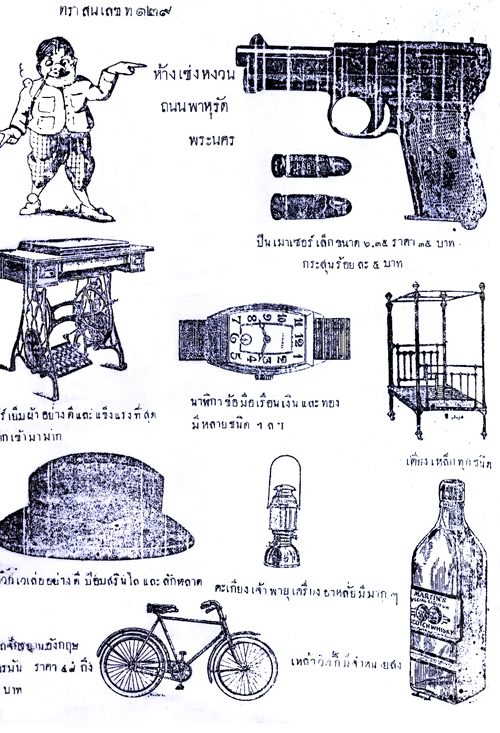 ตราสนเลขที่ ๑๒๙
ห้างเซ่งหงวน
ถนนพาหุรัด
พระนคร
ปืนเมาเซอร์เล็กขนาด ๖.๓๕ ราคา ๓๕ บาท
กระสุนร้อยละ ๕ บาท
นาฬิกาข้อมือเรือนเงินและทอง
มีหลายชนิด ฯลฯ
ร์เย็บผ้าอย่างดีและแข็งแรงที่สุด
เข้ามามาก
เตียงเหล็กทุกชนิด
อย่างดี ป๊อบสรินโก และสักหลาด
ตะเกียงเจ้าพายุเครื่องอาหลั่ยมีมาก ๆ
MARTIN'S
SCOTCH WHISKY
อังกฤษ
ราคา ๔๘ ถึง
บาท
เหล้าวิสกี้มีจำหน่ายส่ง